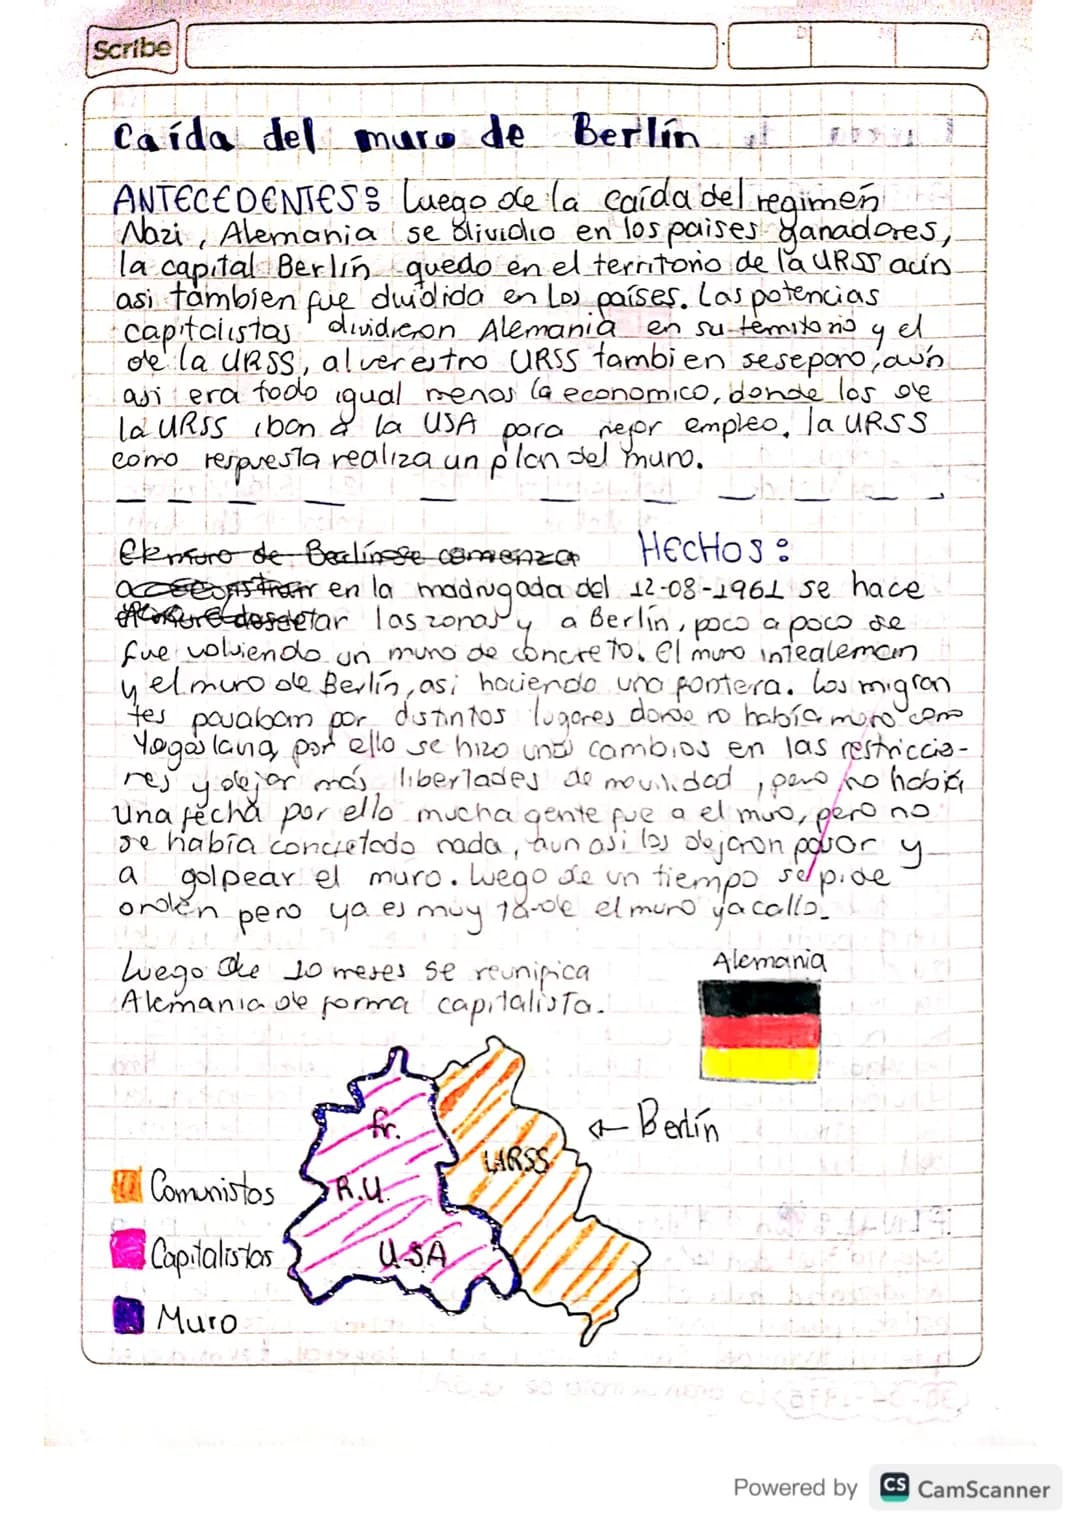 Scribe
Caída del muro de Berlín
ANTECEDENTES: Luego de la caída del regimen
Nazi, Alemania se dividio en los paises ganadores,
la capital Berlín quedo en el territorio de la URSS aún
asi tambien fue dividida en los países. Las potencias
capitalistas dividieron Alemania en su territorio y el
de la URSS, al ver estro URSS tambien se separo, aún
asi era todo igual menos lo economico, donde los de
la URSS iban a la USA para mejor empleo, la URSS
como respuesta realiza un plan del muro.
El muro de Berlín se comenza HECHOS:
a construir en la madrugada del 12-08-1961 se hace
las zonas y a Berlín, poco a poco se
fue volviendo un muro de concreto. El muro intealeman
y el muro de Berlín, asi haciendo una fontera. Los migran
tes pasaban por distintos lugares donde no había muro como
Yogoslavia, por ello se hizo unos cambios en las restriccio-
nes y dejar más libertades de movilidad, pero no había
una fecha por ello mucha gente fue a el muro, pero no
se había concretado nada, aun asi los dejaron pasar y
a golpear el muro. Luego de un tiempo se pide
orden pero ya es muy el muro ya callo.
Luego de 10 meses se reunifica
Alemania de forma capitalista.
Alemania
fr.
R.U.
USA
URSS
Berlín
Comunistas
Capitalistas
Muro
Powered by CS CamScanner